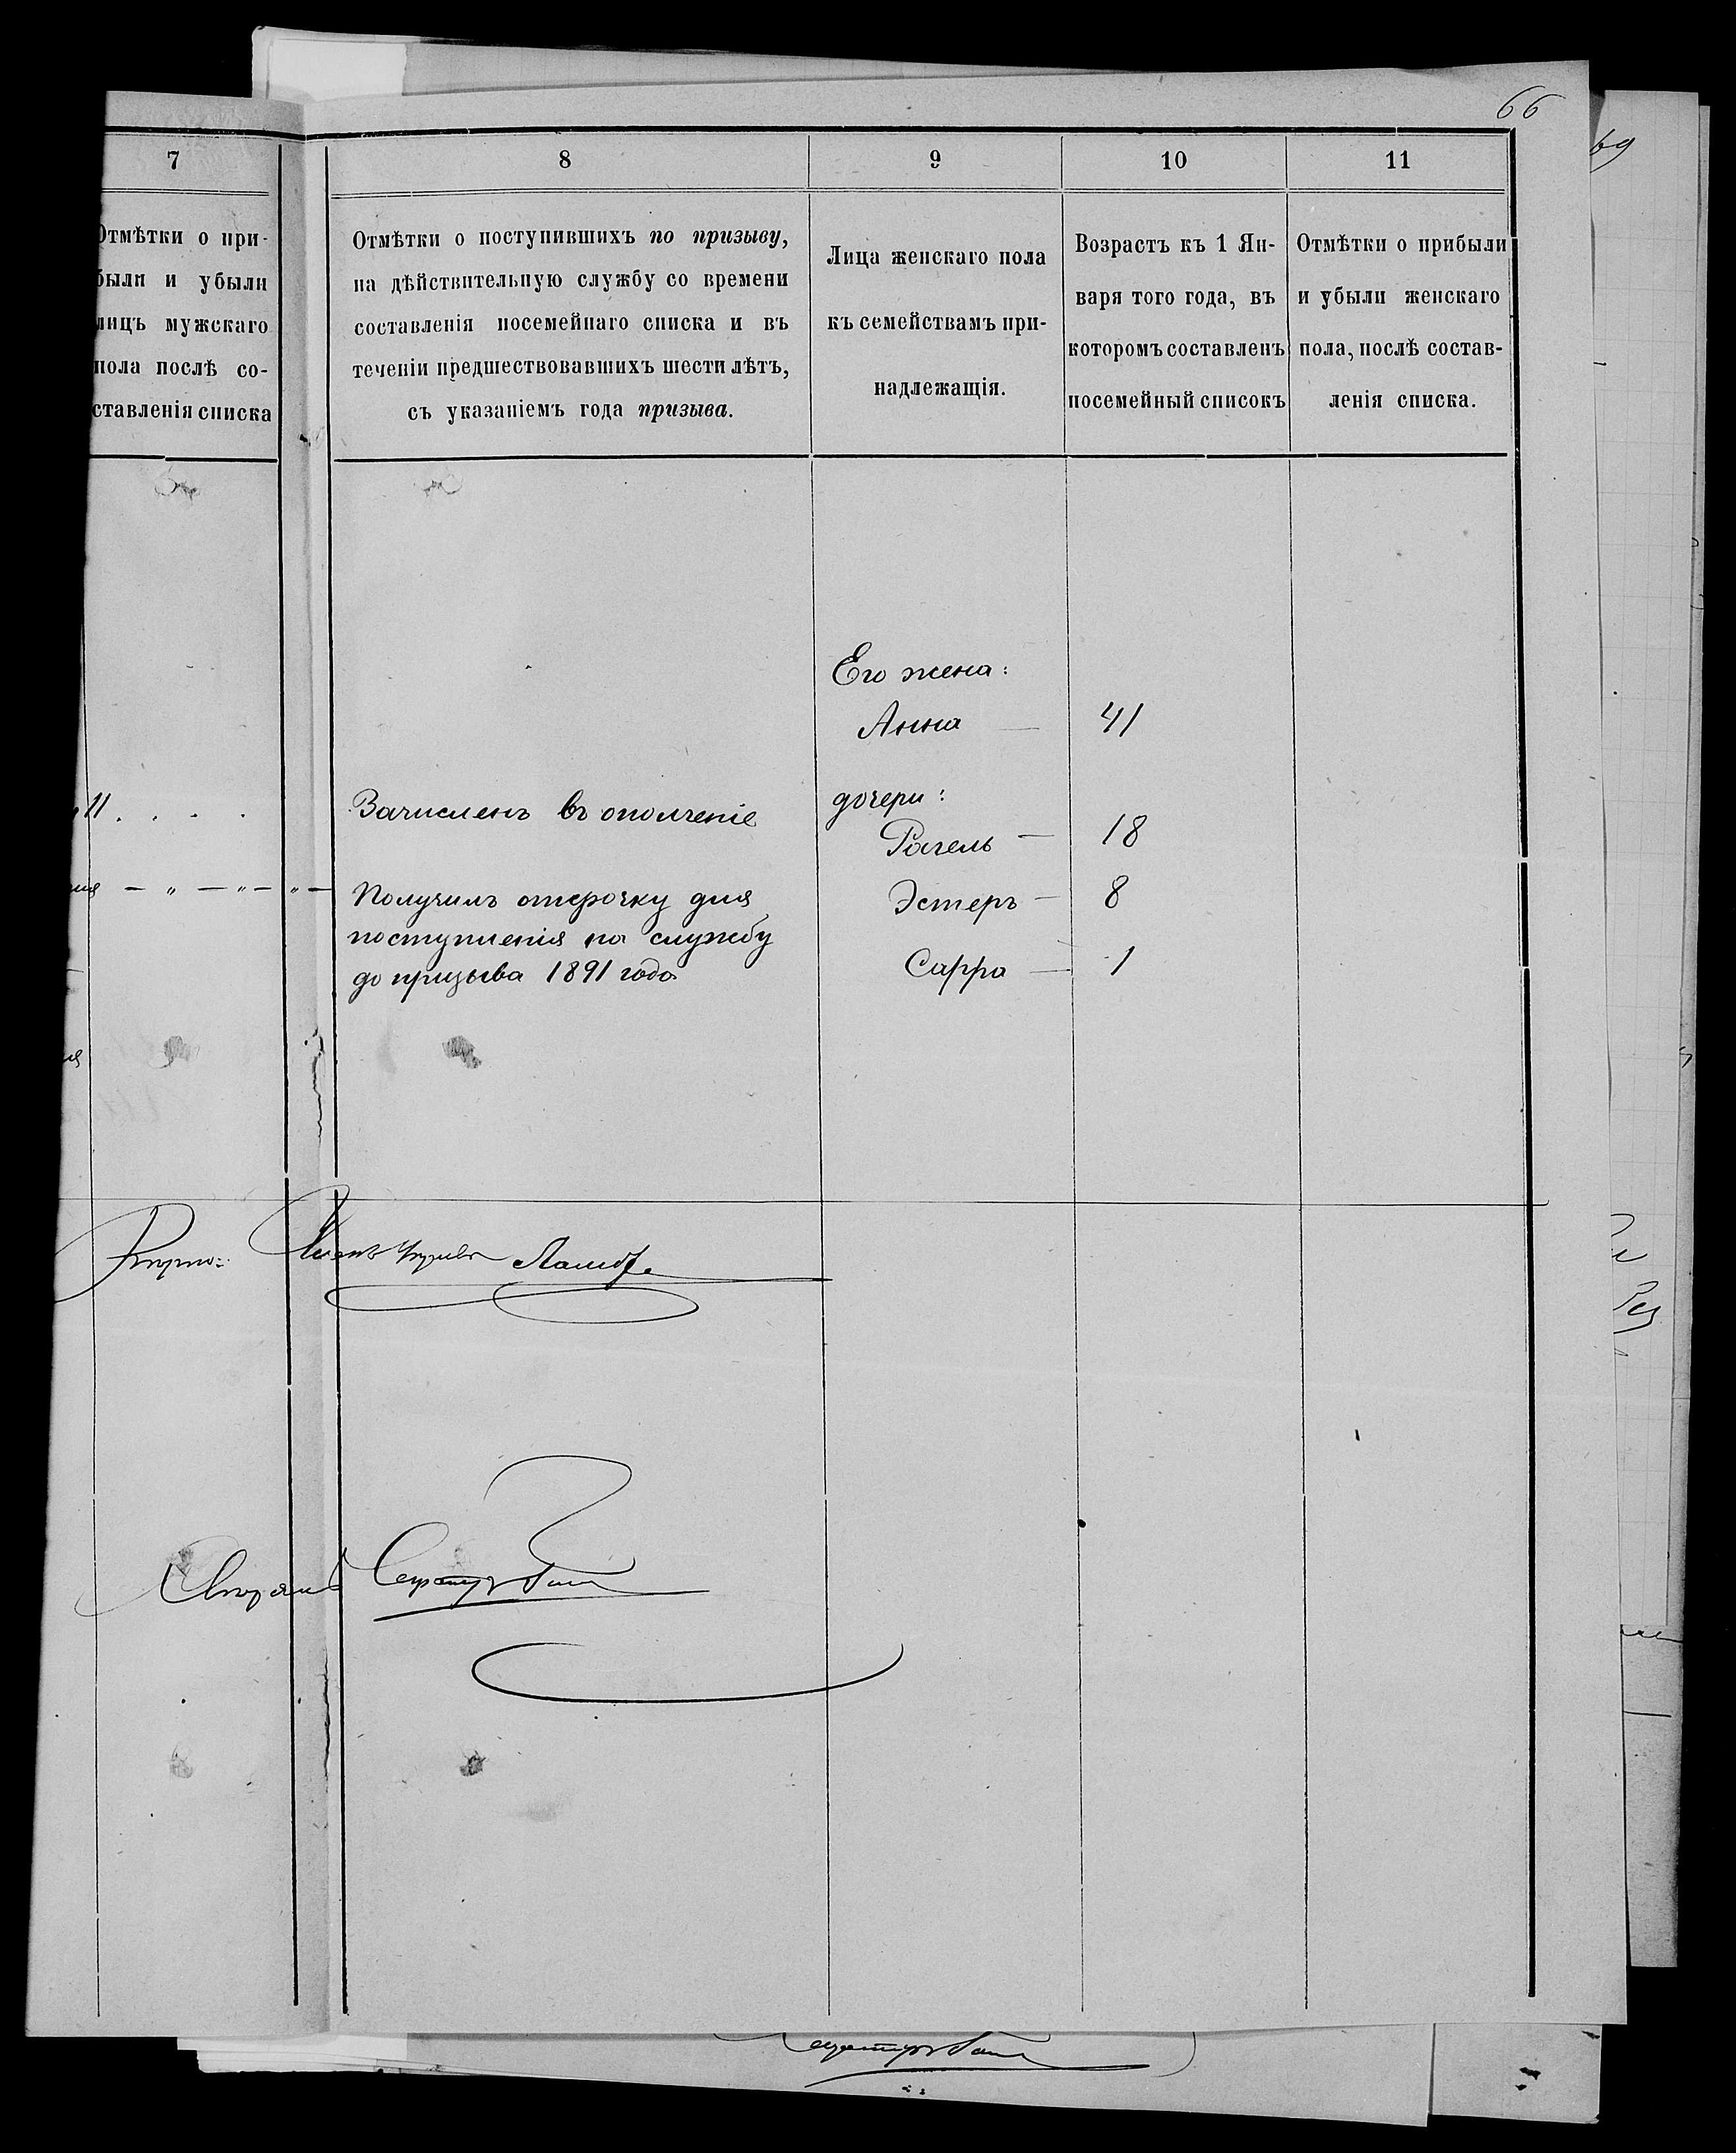 66
69
7
8
9
10
11
Отмѣтки о при-
были и убыли
лицъ мужскаго
пола послѣ со-
ставленія списка
Отмѣтки о поступившихъ по призыву,
на дѣйствительную службу со времени
составленія посемейнаго списка и въ
теченіи предшествовавшихъ шести лѣтъ,
съ указаніемъ года призыва.
Лица женскаго пола
къ семействамъ при-
надлежащія.
Возрастъ къ 1 Ян-
варя того года, въ
которомъ составленъ
посемейный списокъ
Отмѣтки о прибыли
и убыли женскаго
пола, послѣ состав-
ленія списка.
Его жена:
Анна — 41
дочери:
11 . . . .
Зачисленъ въ ополченіе
Рахель — 18
— „ — „ — „ —
Получилъ отсрочку для
поступленія на службу
до призыва 1891 года
Эстеръ — 8
Сарра — 1